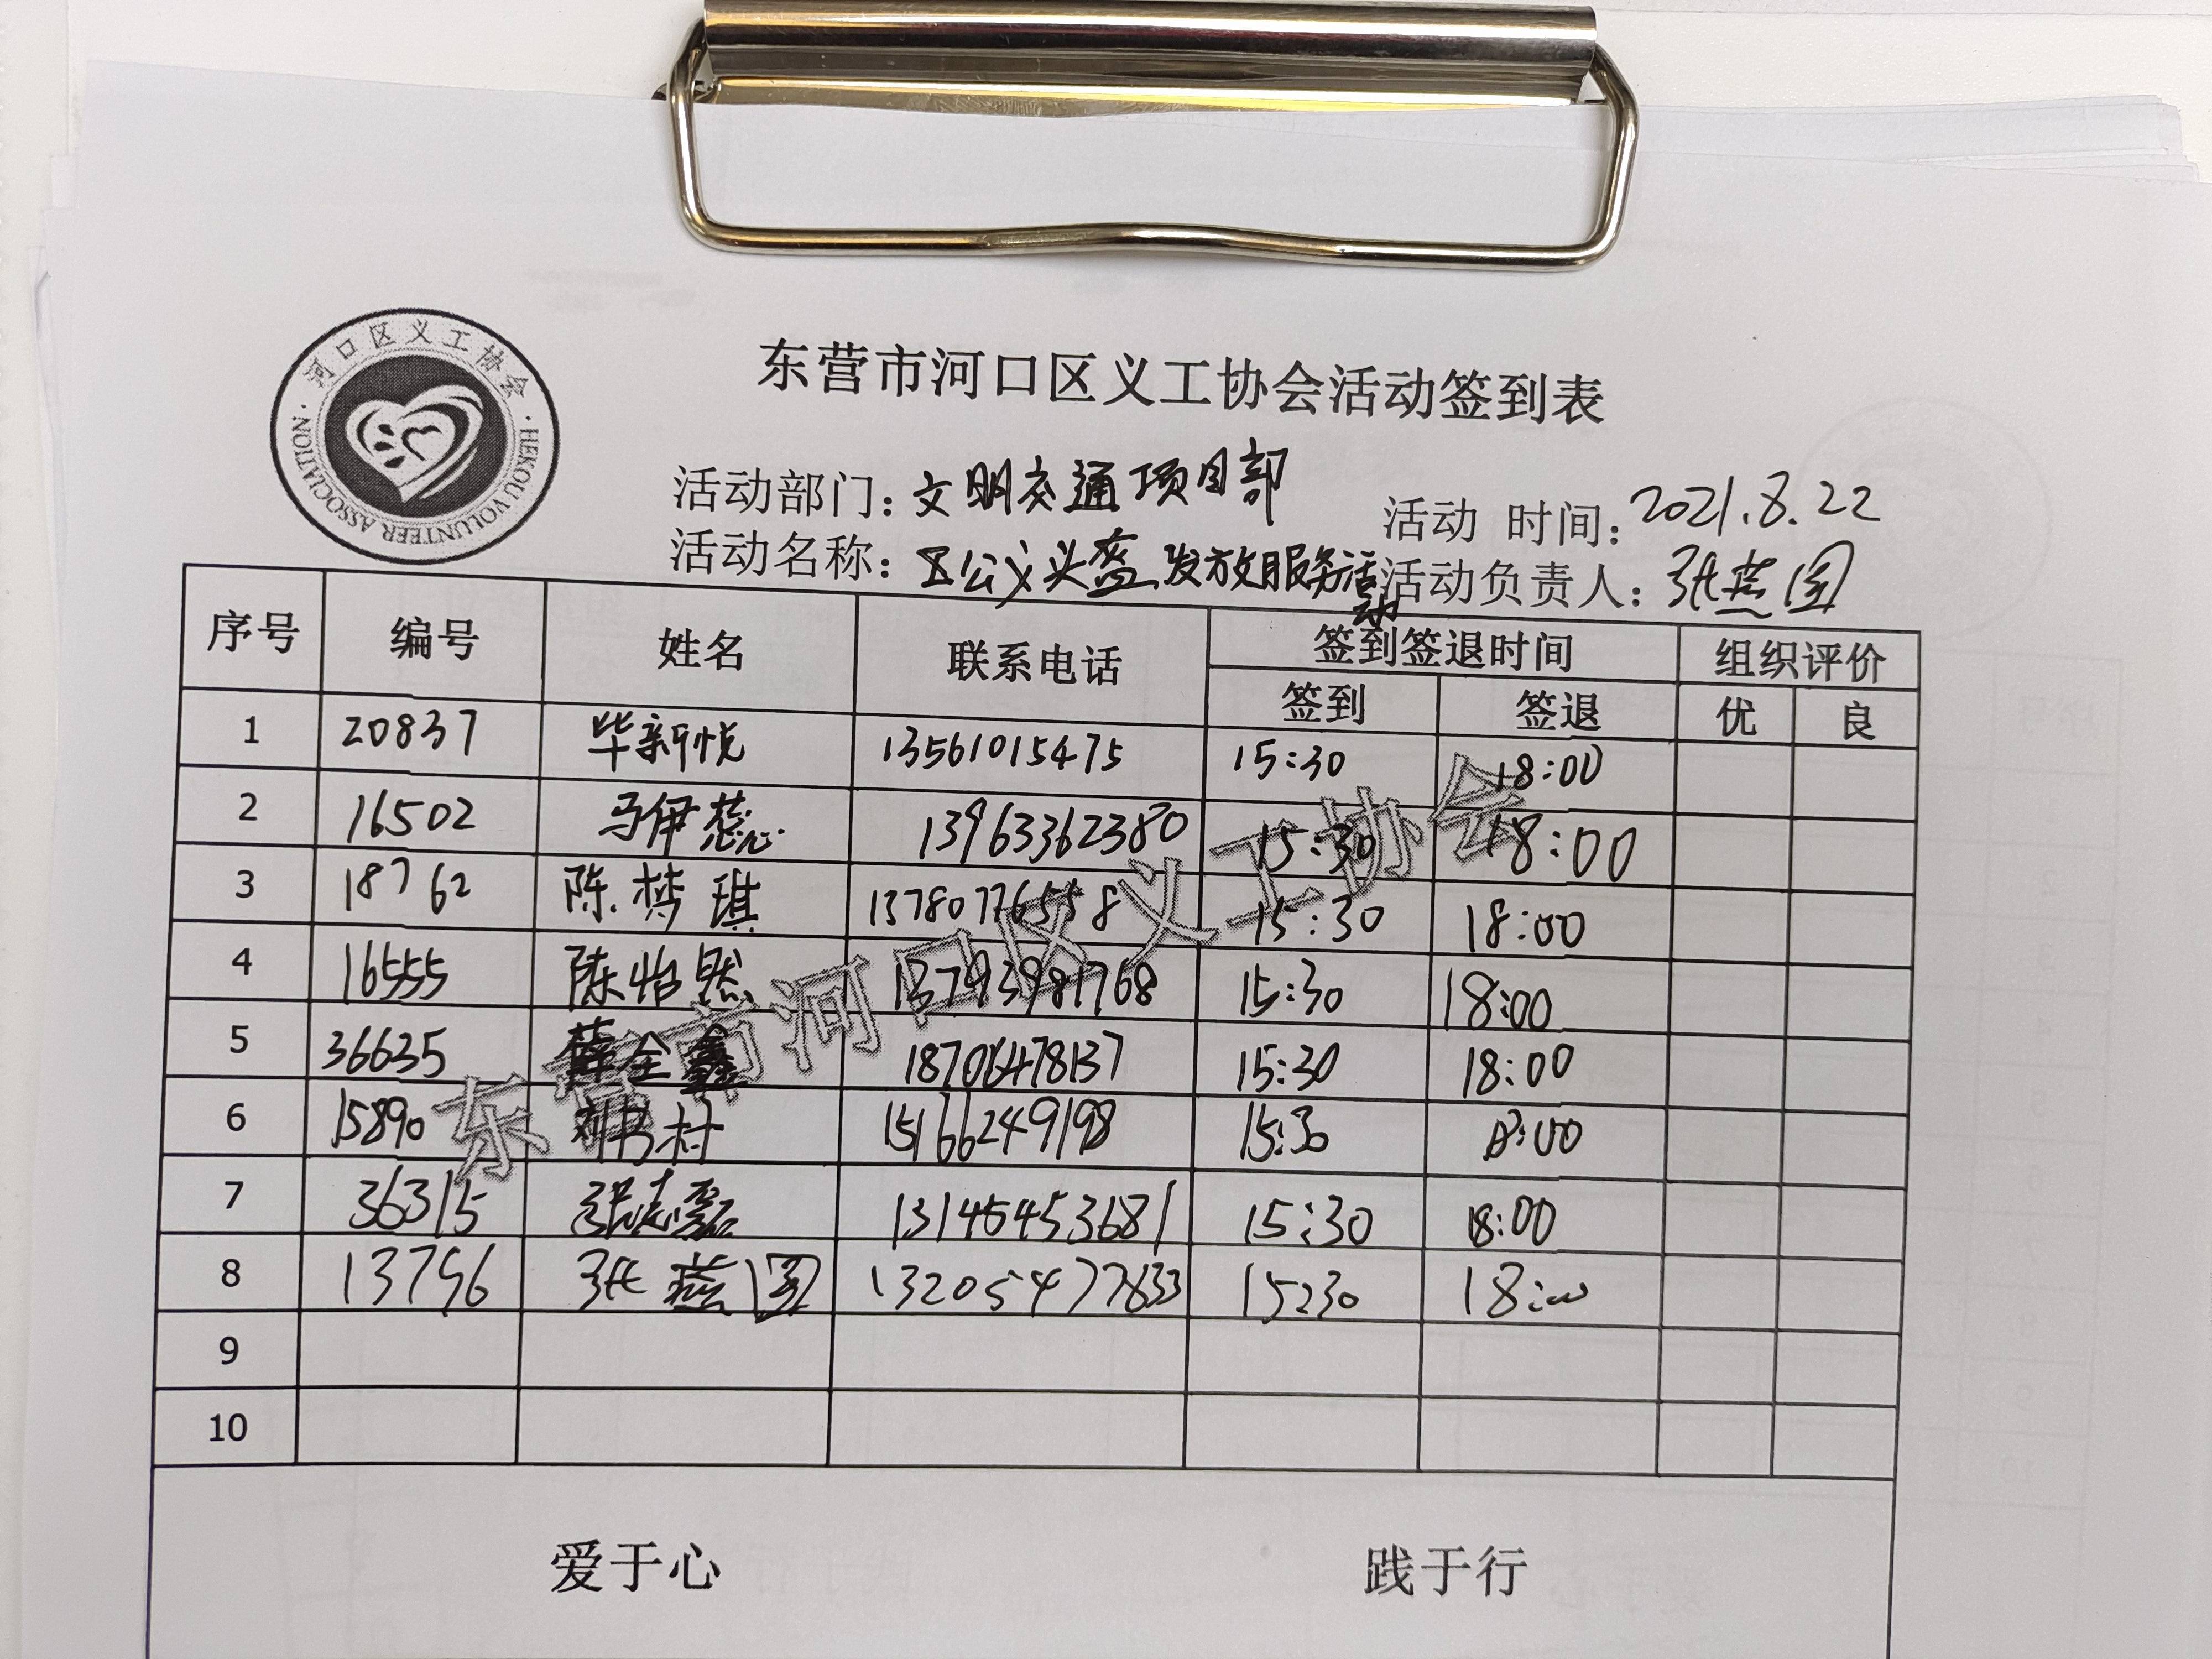 河口区义工协会
HEKOU VOLUNTEER ASSOCIATION
东营市河口区义工协会活动签到表
活动部门：文明交通项目部 活动 时间：2021.8.22
活动名称：公义头盔发放服务活动 活动负责人：张燕图
序号 编号 姓名 联系电话 签到签退时间 组织评价
签到 签退 优 良
1 20837 毕新悦 13561015475 15:30 18:00
2 16502 马伊蕊 13963362380 15:30 18:00
3 18762 陈梦琪 13780776558 15:30 18:00
4 16555 陈怡然 13793981768 15:30 18:00
5 36635 薛全鑫 18706478137 15:30 18:00
6 15890 刘书村 15166249198 15:30 18:00
7 36315 张志磊 13145453681 15:30 18:00
8 13756 张燕图 13205477833 15:30 18:00
9
10
东营市河口区义工协会
爱于心 践于行